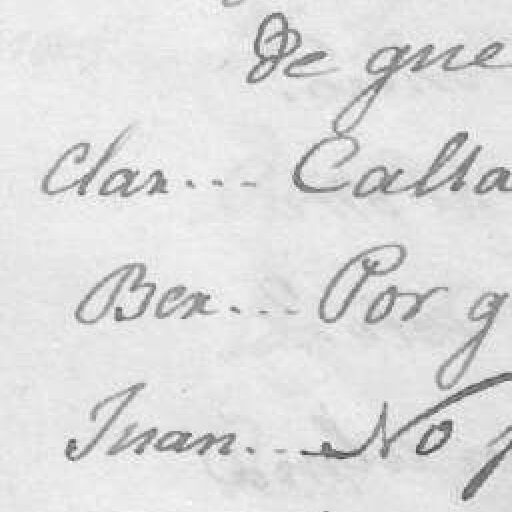 De que
Clar... Calla
Ber... Por q
Juan... No p